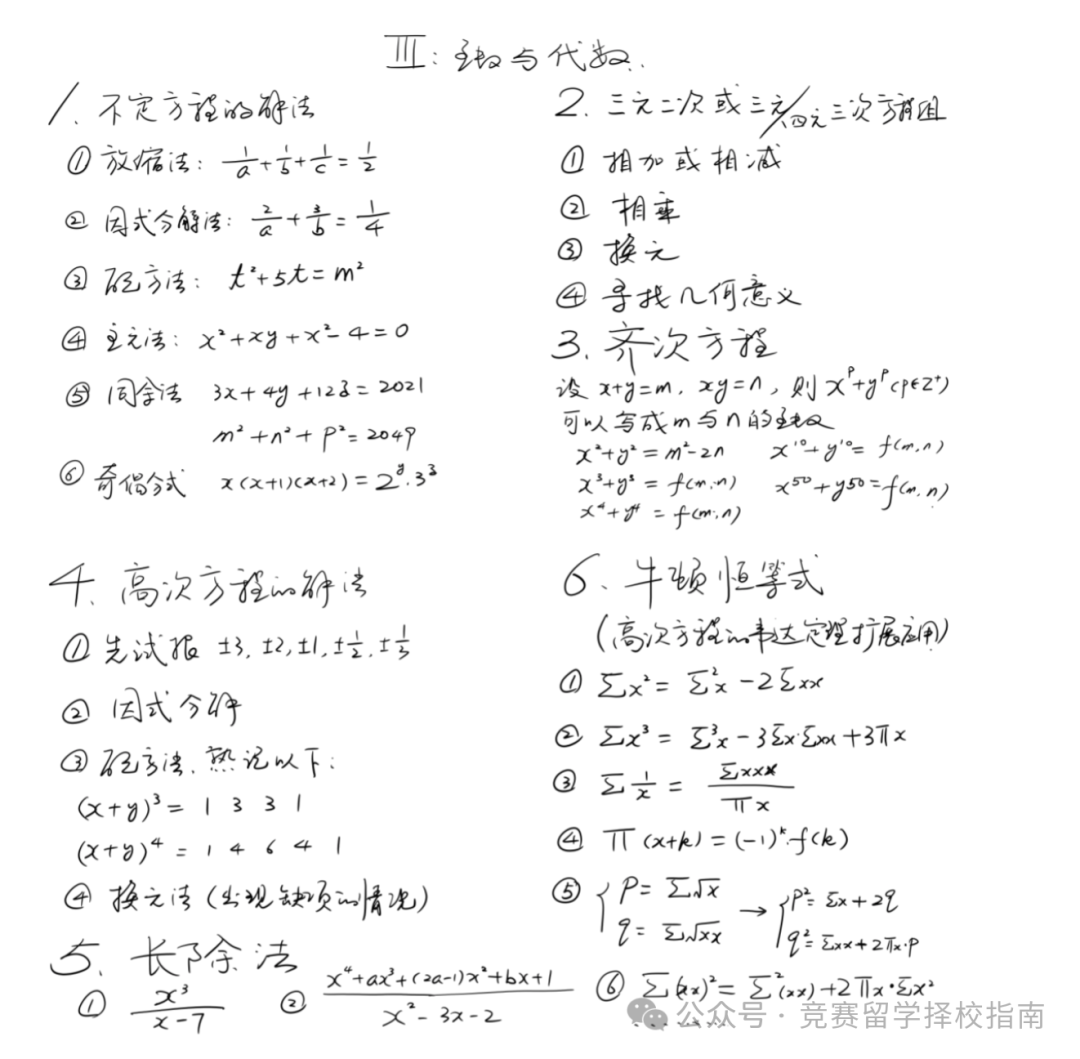 Ⅲ:函数与代数.
1. 不定方程的解法
① 放缩法: 1/a + 1/b + 1/c = 1/2
② 因式分解法: 2/a + 3/b = 1/4
③ 配方法: t²+5t=m²
④ 主元法: x²+xy+x²-4=0
⑤ 同余法 3x+4y+12z=2021
m²+n²+p²=2049
⑥ 奇偶分式 x(x+1)(x+2)=2^y·3^z
2. 三元二次或三元/四元三次方程组
① 相加或相减
② 相乘
③ 换元
④ 寻找几何意义
3. 齐次方程
设 x+y=m, xy=n, 则 x^p+y^p (p∈Z⁺)
可以写成m与n的函数
x²+y²=m²-2n x¹⁰+y¹⁰=f(m,n)
x³+y³=f(m,n) x⁵⁰+y⁵⁰=f(m,n)
x⁴+y⁴=f(m,n)
4. 高次方程的解法
① 先试根 ±3, ±2, ±1, ±1/2, ±1/3
② 因式分解
③ 配方法, 熟记以下:
(x+y)³= 1 3 3 1
(x+y)⁴= 1 4 6 4 1
④ 换元法(出现缺项的情况)
5. 长除法
① x³/(x-7) ② (x⁴+ax³+(2a-1)x²+bx+1)/(x²-3x-2)
6. 牛顿恒等式
(高次方程的韦达定理扩展应用)
① Σx²=Σ²x-2Σxx
② Σx³=Σ³x-3Σx·Σxx+3πx
③ Σ1/x=Σxxx/πx
④ π(x+k)=(-1)^k·f(k)
⑤ {p=Σ√x → {p²=Σx+2q
q=Σ√xx q²=Σxx+2πx·p
⑥ Σ(xx)²=Σ²(xx)+2πx·Σx²
公众号·竞赛留学择校指南